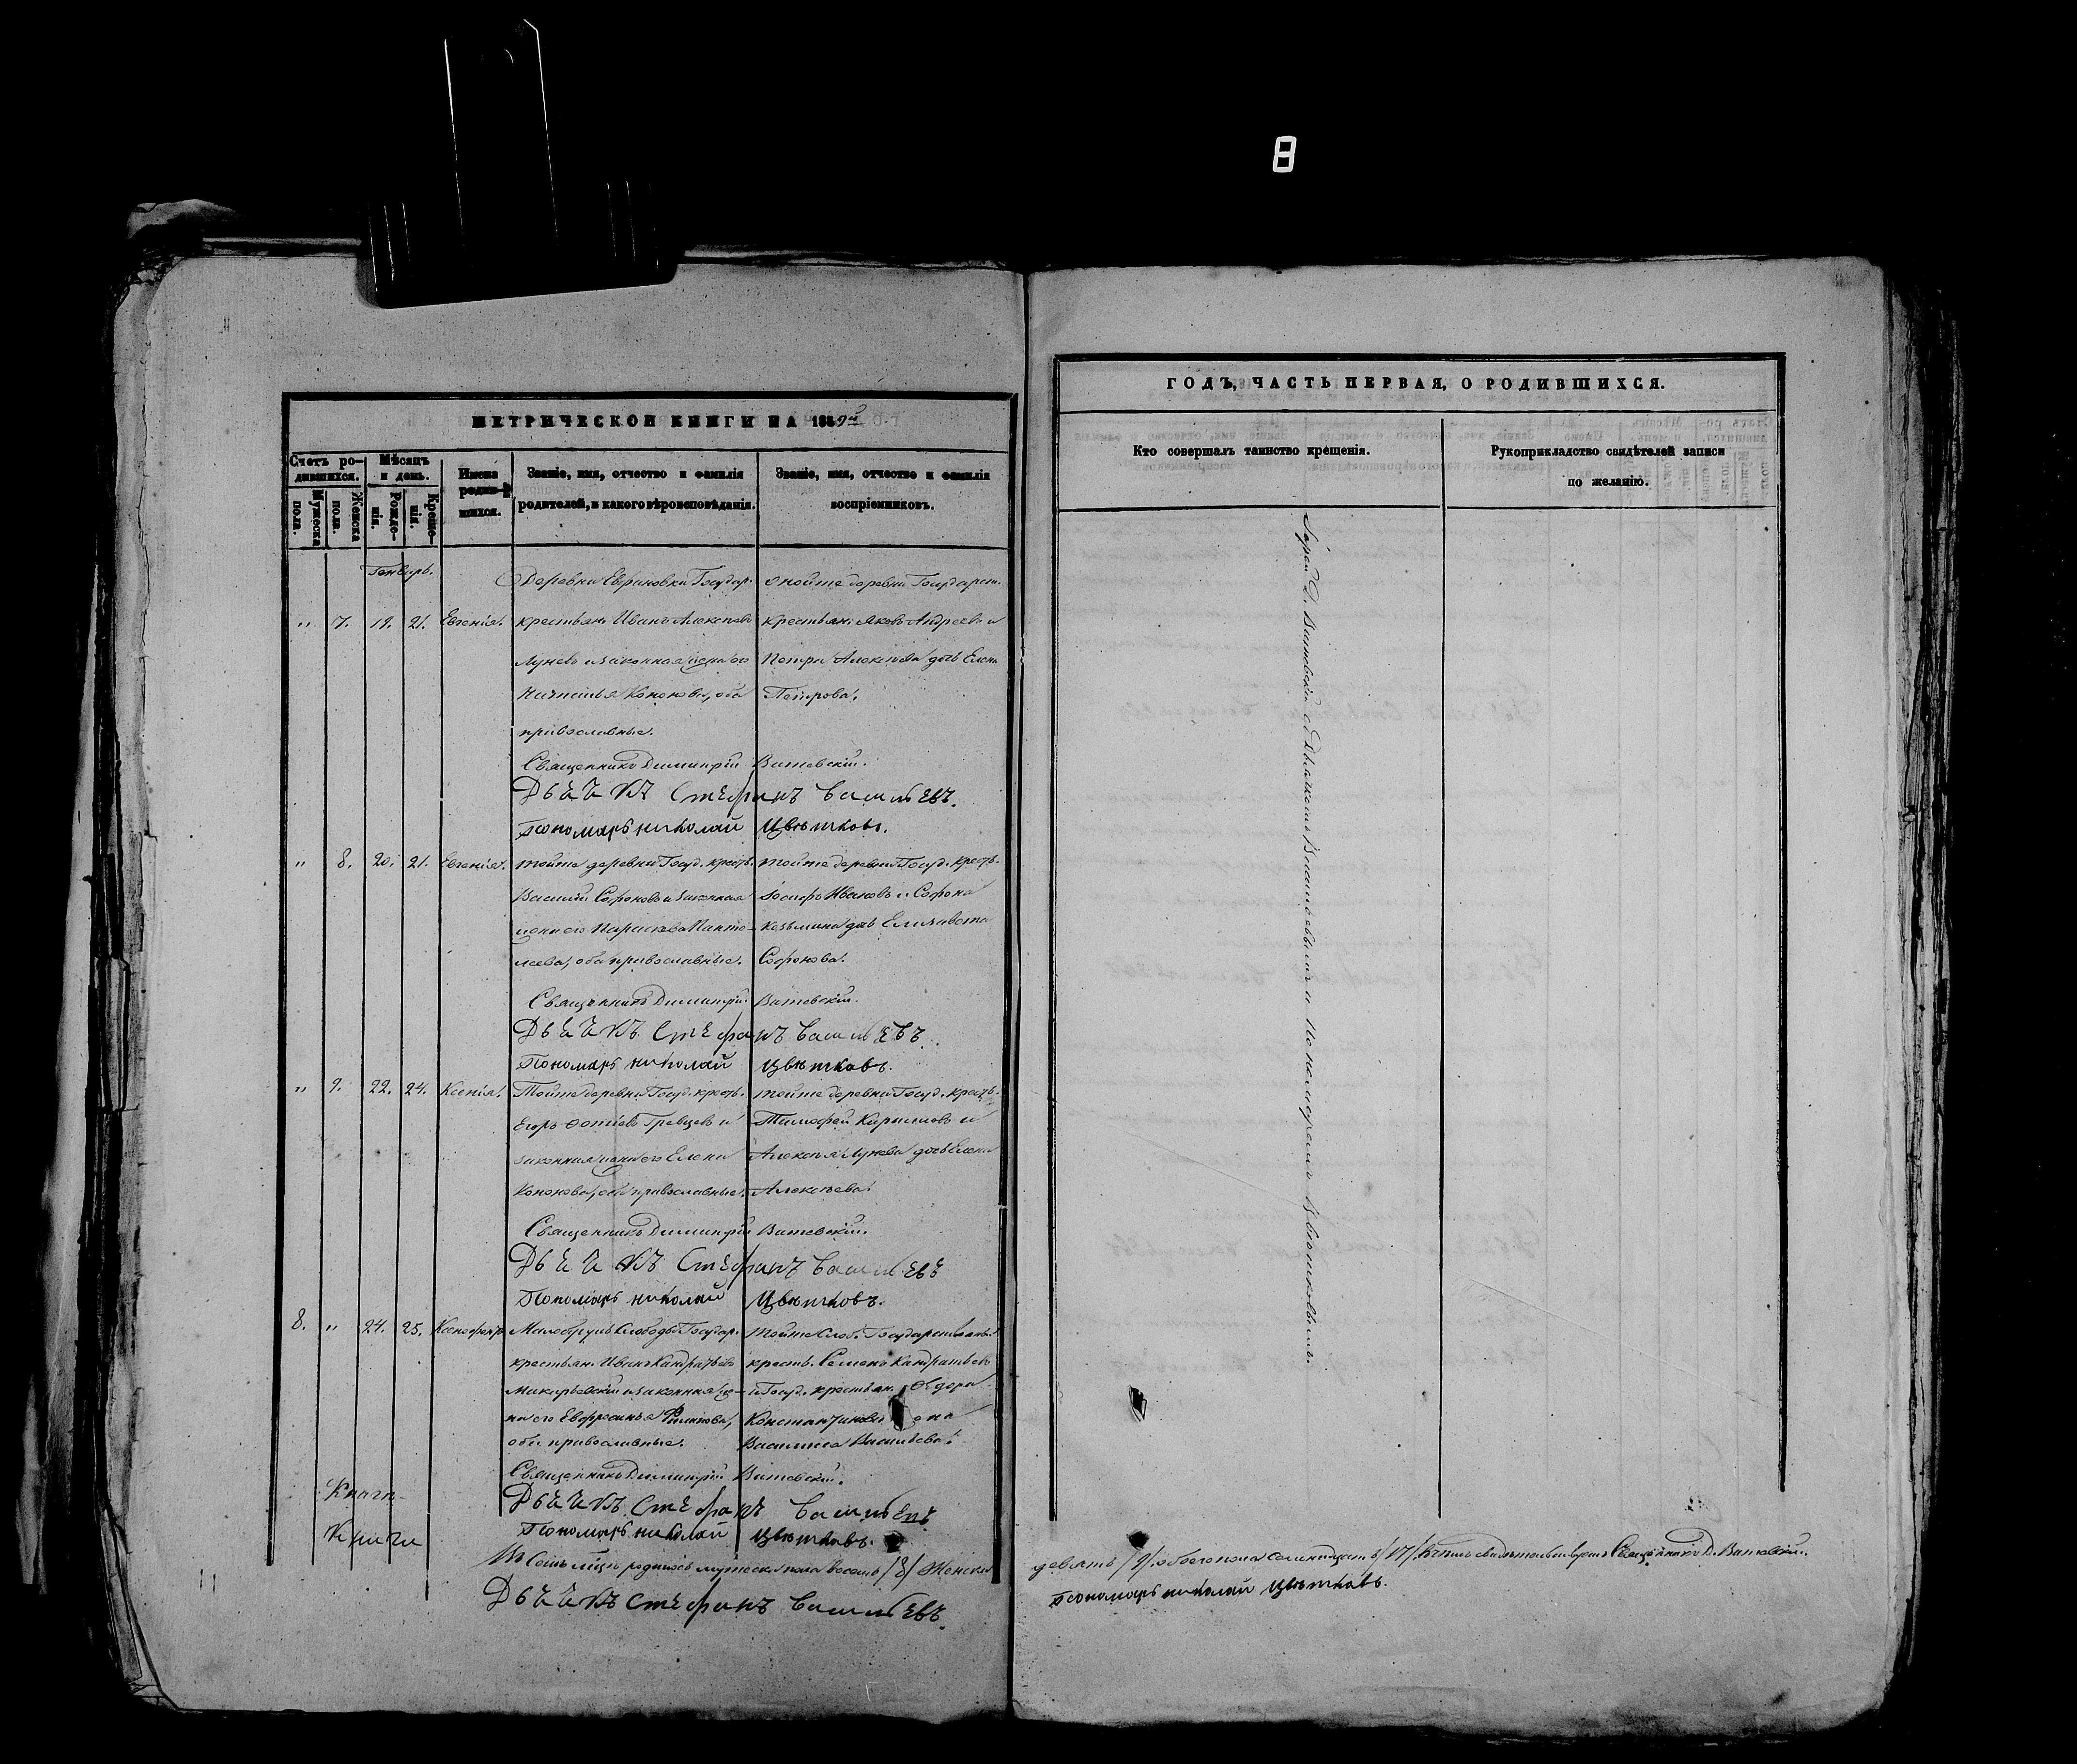 МЕТРИЧЕСКОЙ КНИГИ НА 1869й
Счетъ ро-
дившихся.
Мужеска
пола.
Женска
пола.
Мѣсяцъ
и день.
Рожде-
нія.
Креще-
нія.
Имена
родив-
шихся.
Званіе, имя, отчество и фамилія
родителей, и какого вѣроисповѣданія.
Званіе, имя, отчество и фамилія
воспріемниковъ.
Генварь.
Деревни Государ.
тойже деревни Государст.
" 7. 19. 21. Евгенія. крестьян. Иванъ Алексѣевъ
крестьян. Яковъ Андреевъ и
Луневъ и законная жена его
Петра Алексѣева дочь Елена
Наталья Кононова, оба
Петрова.
православные.
Священникъ Димитрій Витевскій.
Дьячекъ Стефанъ Васильевъ.
Пономарь Николай Цвѣтковъ.
" 8. 20. 21. Евгенія. тойже деревни Госуд. крест.
тойже деревни Госуд. крест.
Василій Софоновъ и законная
Іосифъ Ивановъ и Софона
жена его Параскева Панте-
Козьмина дочь Елизавета
леева, оба православные.
Софонова.
Священникъ Димитрій Витевскій.
Дьячекъ Стефанъ Васильевъ.
Пономарь Николай Цвѣтковъ.
" 9. 22. 24. Ксенія. Тойже деревни Госуд. крест.
тойже деревни Госуд. крест.
Егоръ Фотіевъ Гревцевъ и
Тимофей Кириловъ и
законная жена его Елена
Алексѣя Лунева дочь Елена
Кононова, оба православные.
Алексѣева.
Священникъ Димитрій Витевскій.
Дьячекъ Стефанъ Васильевъ
Пономарь Николай Цвѣтковъ.
8. " 24. 25. Ксенофонтъ Слободы Государ.
тойже Слоб. Государственный
крестьян. Иванъ Кандратьевъ
крест. Семенъ Кандратьевъ
и законная же-
и Госуд. крестьян. Ѳедора
на его Евфросинья Филипова,
Константинова жена
оба православные.
Василиса Васильева.
Священникъ Димитрій Витевскій.
Дьячекъ Стефанъ Васильевъ
Пономарь Николай Цвѣтковъ.
Книги
Въ семъ м-цѣ родилось мужеска пола восемь /8/ Женска
Дьячекъ Стефанъ Васильевъ.
ГОДЪ, ЧАСТЬ ПЕРВАЯ, О РОДИВШИХСЯ.
Кто совершалъ таинство крещенія.
Рукоприкладство свидѣтелей записи
по желанію.
Іерей Д. Витевскій съ Дьячкомъ Васильевымъ и Пономаремъ Цвѣтковымъ.
девять /9/. обоего пола семнадцать /17/. Въ чемъ свидѣтельствуемъ Священникъ Д. Витевскій.
Пономарь Николай Цвѣтковъ.